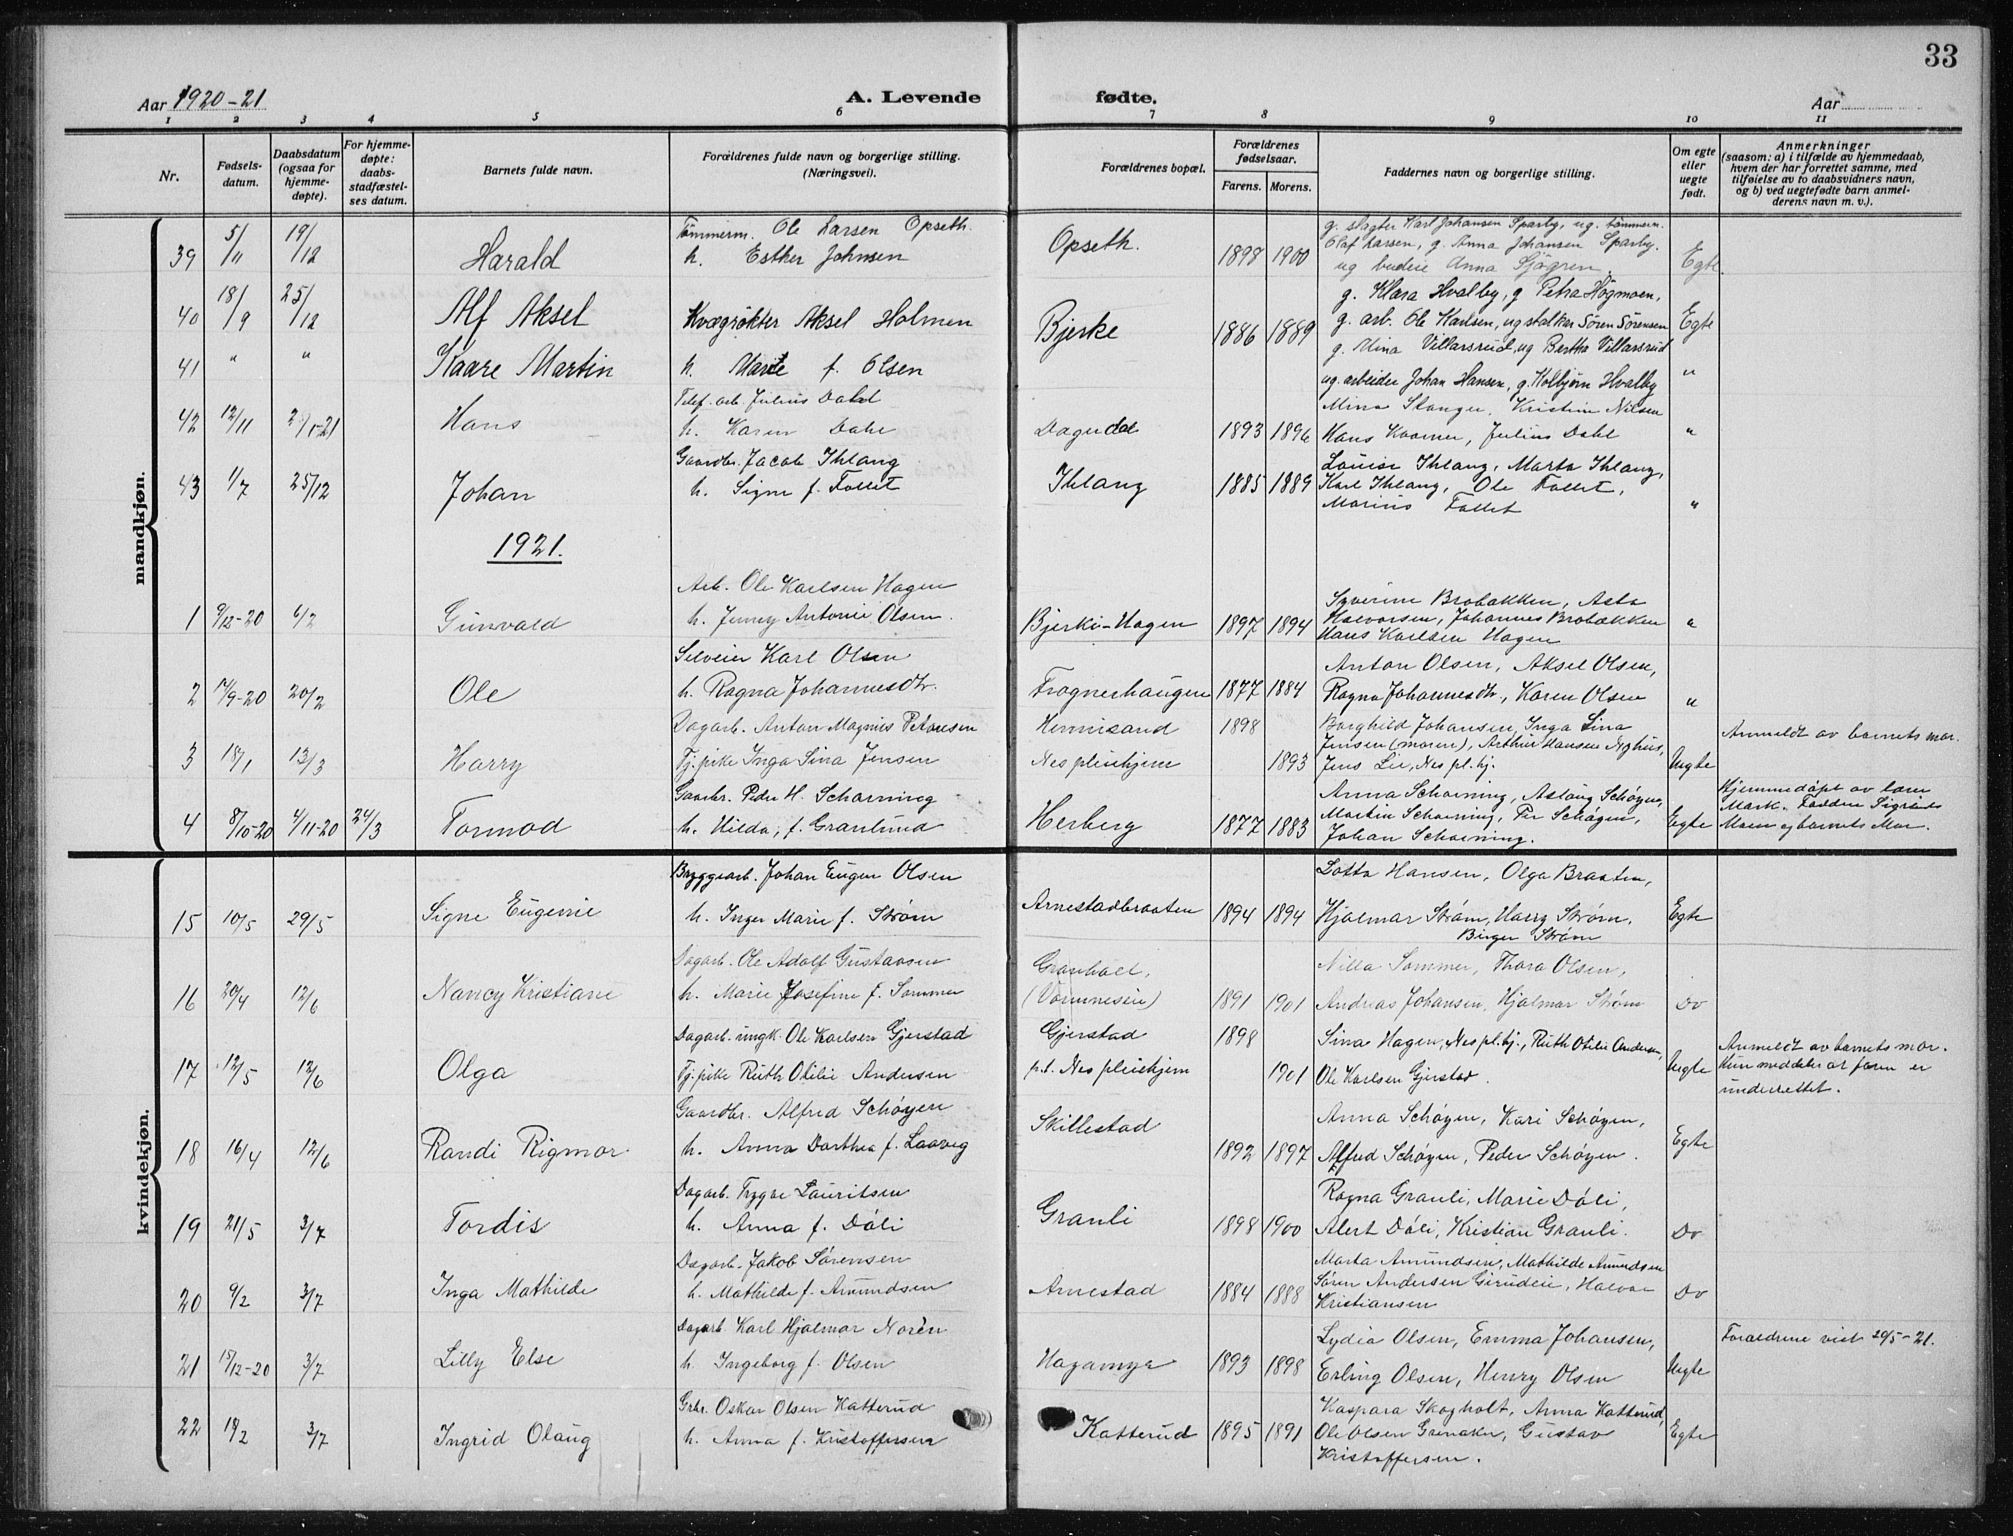 33
Aar 1920-21
A. Levende fødte.
Aar
1 2 3 4 5 6 7 8 9 10 11
Nr.
Fødsels-
datum.
Daabsdatum
(ogsaa for
hjemme-
døpte).
For hjemme-
døpte:
daabs-
stadfæstel-
ses datum.
Barnets fulde navn.
Forældrenes fulde navn og borgerlige stilling.
(Næringsvei).
Forældrenes bopæl.
Forældrenes
fødselsaar.
Farens. Morens.
Faddernes navn og borgerlige stilling.
Om egte
eller
uegte
født.
Anmerkninger
(saasom: a) i tilfælde av hjemmedaab,
hvem der har forrettet samme, med
tilføielse av to daabsvidners navn,
og b) ved uegtefødte barn anmel-
derens navn m. v.).
mandkjøn.
39 5/11 19/12 Harald
Tømmerm. Ole Larsen Opseth.
h. Esther Johnsen
Opseth. 1898 1900
g. slagter Karl Johansen Sparby, ug. tømmerm.
Olaf Larsen, g. Anna Johansen Sparby.
ug budeie Anna Sjögren.
Egte.
40 18/9 25/12 Alf Aksel
Kvægrøkter Aksel Holmen
Bjerke 1886 1889
g. Klara Hvalby, g Petra Högmoen,
g. arb. Ole Karlsen, ug stalkar Sören Sörensen
g. Mina Villarsrud, ug Bertha Villarsrud
Egte
41 " " Kaare Martin
h. Marte f. Olsen
ug. arbeider Johan Hansen, g. Kolbjørn Hvalby
"
42 12/11 2/1-21 Hans
Telef. arb. Julius Dahl
h. Karen Dahl
Dagudal 1893 1896
Mina Stanger, Kristine Nilsen
Hans Kromer, Julius Dahl
"
43 1/7 25/12 Johan
Gaardbr. Jacob Ihlang
h. Signe f. Fallet
Ihlang 1885 1889
Louise Ihlang, Marta Ihlang,
Karl Ihlang, Ole Fallet,
Marius Fallet
"
1921.
1 9/12-20 6/2 Gunvald
Arb. Ole Karlsen Hagen
h. Jenny Antonie Olsen.
Bjerke-Hagen 1897 1894
Syverine Brobækken, Asta
Halvorsen, Johannes Brobækken
Hans Karlsen Hagen
"
2 7/9-20 20/2 Ole
Selveier Karl Olsen
h. Ragna Johannesdtr.
Frognerhaugen 1877 1884
Anton Olsen, Aksel Olsen,
Ragna Johannesdtr, Karen Olsen
"
3 18/1 13/3 Harry
Dagarb. Anton Magnus Petersen
Tj. pike Inga Sina Jensen
Hernisand 1898
Nes pleiehjem 1893
Borghild Johansen, Inga Sina
Jensen (moren), Arthur Hansen Nyhus,
Jens Lie, Nes pl. hj.
Uegte
Anmeldt av barnets mor.
4 8/10-20 4/11-20 24/3 Tormod
Gaardbr. Peder H. Scharning
h. Hilda, f. Granlund
Herberg 1877 1883
Anna Scharning, Aslaug Schøyen,
Martin Scharning, Per Schøyen,
Johan Scharning.
Egte
Hjemmedøpt av lærer
Mark. Faddere Sigrid
Moen og barnets Mor.
kvindekjøn.
15 10/5 29/5 Signe Eugenie
Bryggearb. Johan Eugen Olsen
h. Inger Marie f. Strøm
Arnestadbraaten 1894 1894
Lotta Hansen, Olga Braaten,
Hjalmar Strøm, Harry Strøm,
Birger Strøm
Egte
16 20/4 12/6 Nancy Kristiane
Dagarb. Ole Adolf Gustavsen
h. Marie Josefine f. Sommer
Granholt,
(Vormneseie) 1891 1901
Nilla Sommer, Thora Olsen,
Andreas Johansen, Hjalmar Strøm
Do
17 12/5 12/6 Olga
Dagarb. ungk. Ole Karlsen Gjerstad
Tj. pike Ruth Otilie Andersen
Gjerstad 1898
p.t. Nes pleiehjem 1901
Sina Hagen, Nes pl. hj., Ruth Otilie Andersen,
Ole Karlsen Gjerstad.
Uegte
Anmeldt av barnets mor.
Hun meddeler at faren er
underrettet.
18 16/4 12/6 Randi Rigmor
Gaardbr. Alfred Schøyen
h. Anna Dorthea f. Laaveg
Skillestad 1892 1897
Anna Schøyen, Kari Schøyen,
Alfred Schøyen, Peder Schøyen.
Egte
19 21/5 3/7 Tordis
Dagarb. Trygve Lauritsen
h. Anna f. Dóli
Granli 1898 1900
Ragna Granli, Marie Dóli,
Alert Dóli, Kristian Granli.
Do
20 9/2 3/7 Inga Mathilde
Dagarb. Jakob Sørensen
h. Mathilde f. Amundsen
Arnestad 1884 1888
Marta Amundsen, Mathilde Amundsen
Søren Andersen Girudeie, Halvor
Kristiansen
Do
21 15/12-20 3/7 Lilly Else
Dagarb. Karl Hjalmar Norén
h. Ingeborg f. Olsen
Hagamya 1893 1898
Lydia Olsen, Emma Johansen,
Erling Olsen, Henry Olsen
Uegte
Foreldrene viet 20/5-21.
22 19/2 3/7 Ingrid Olaug
Grbr. Oskar Olsen Katterud
h. Anna f. Kristoffersen
Katterud 1895 1891
Kaspara Skogholt, Anna Katterud,
Ole Olsen Grenaker, Gustav
Kristoffersen.
Egte